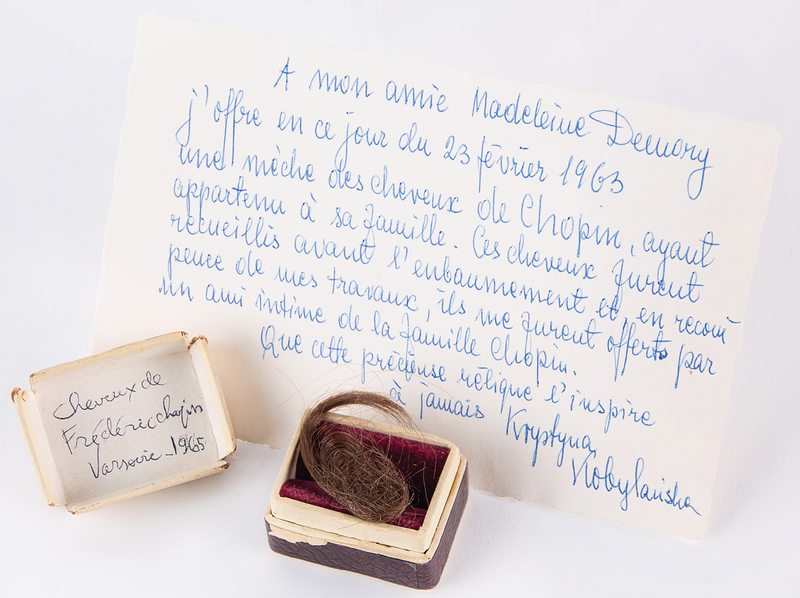 A mon amie Madeleine Demory
j'offre en ce jour du 23 février 1963
une mèche des cheveux de Chopin, ayant
appartenu à sa famille. Ces cheveux furent
recueillis avant l'enbaumement et, en recom
pence de mes travaux, ils me furent offerts par
un ami intime de la famille Chopin.
Que cette précieuse rélique l'inspire
à jamais Krystyna
Kobylańska
Cheveux de
Frédéric Chopin
Varsovie - 1965